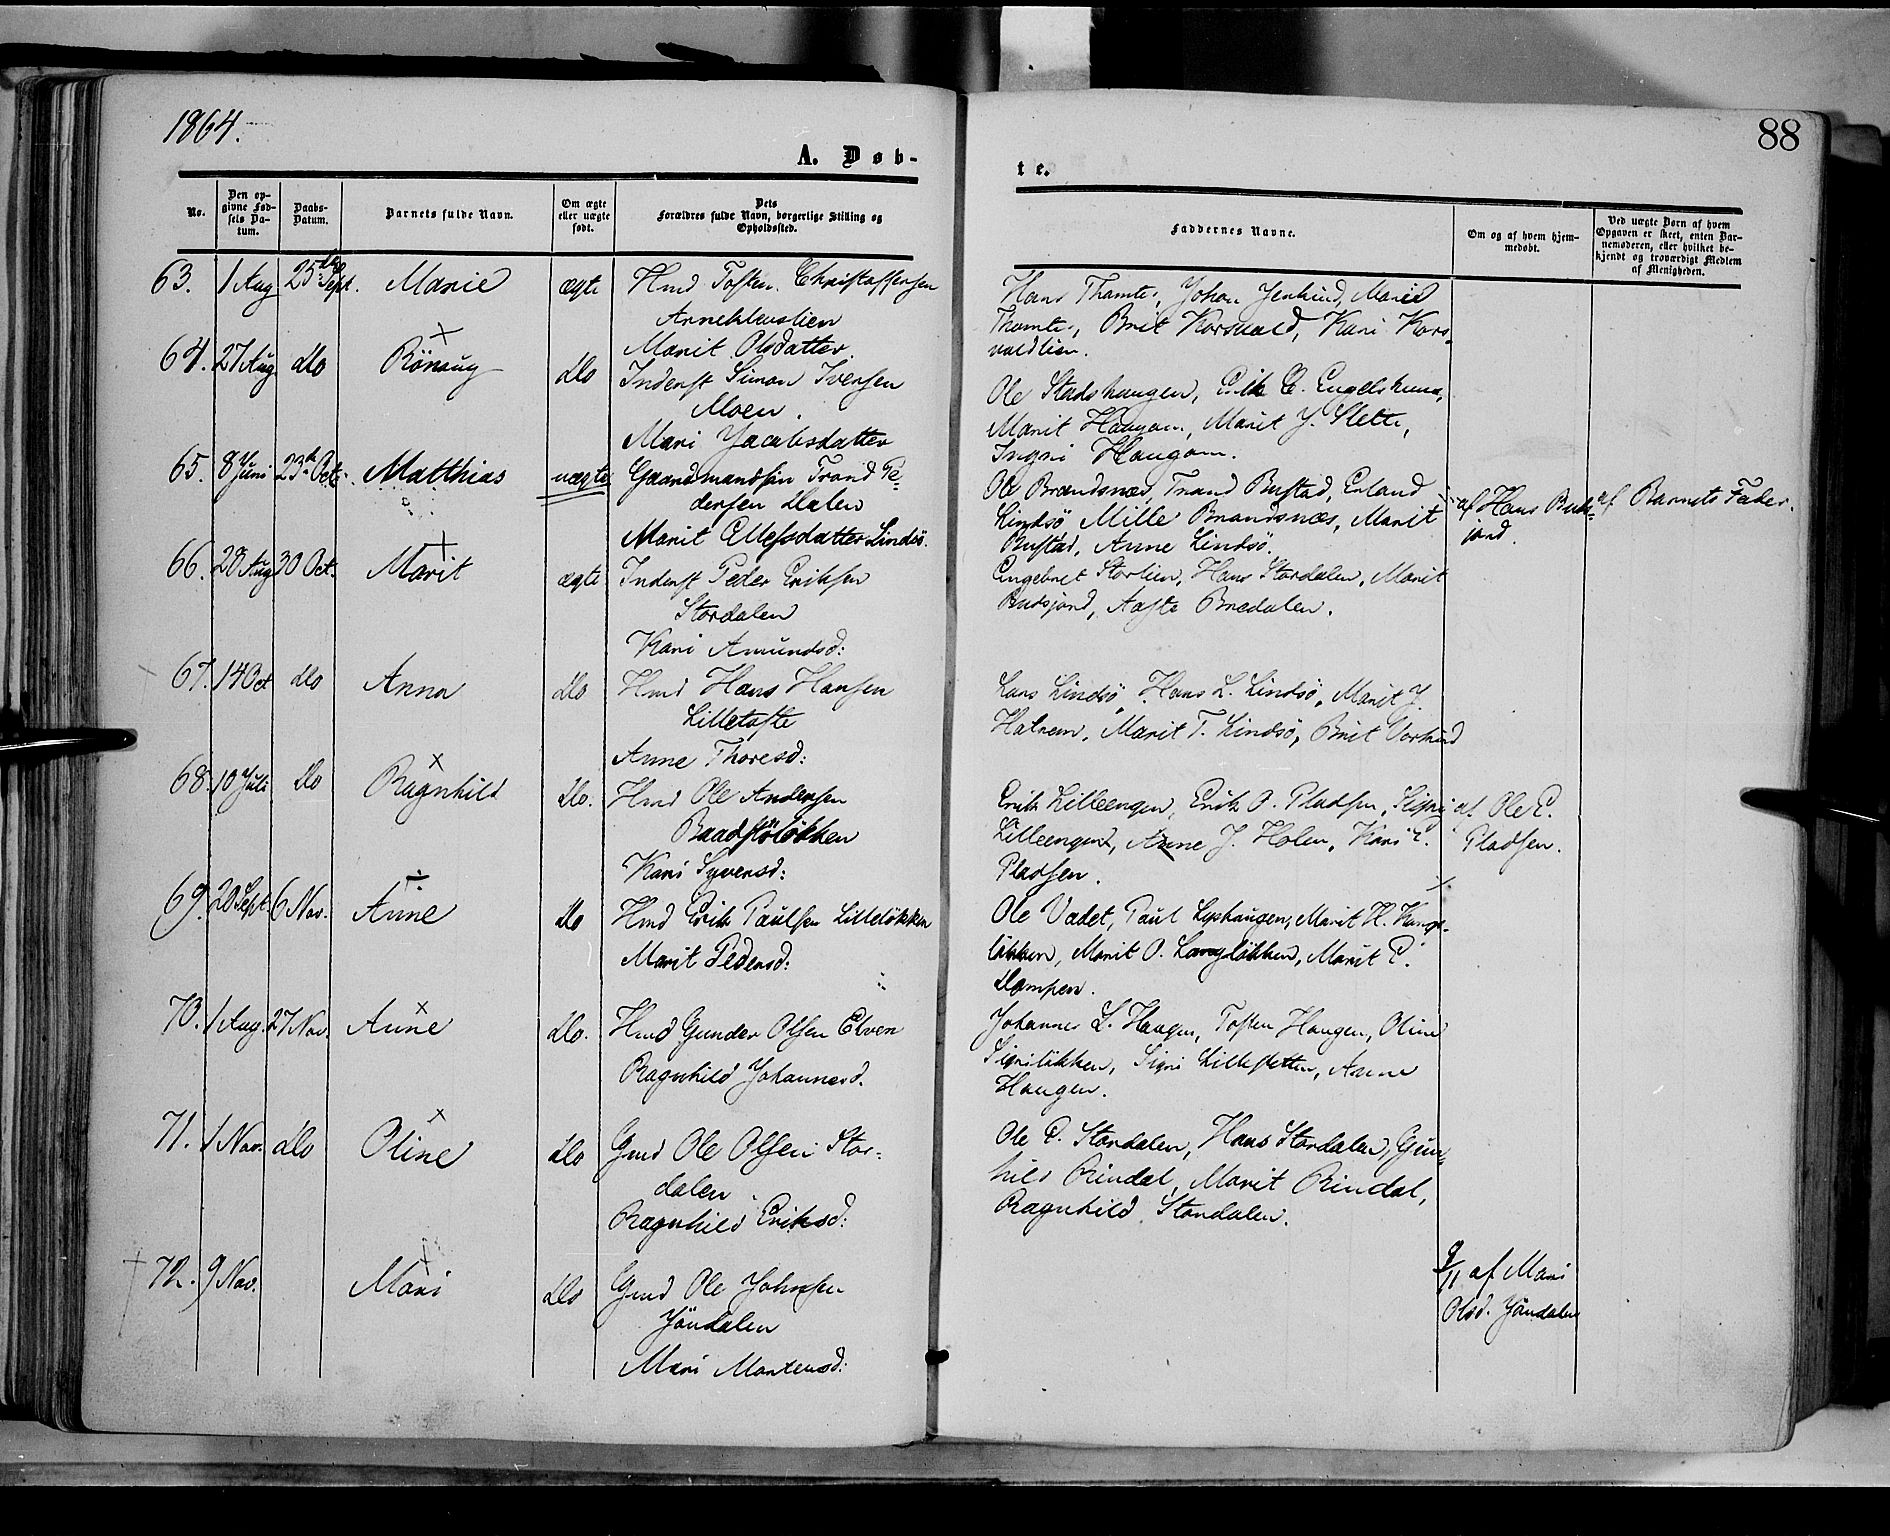 1864.
88
A. Døb-
te.
No.
Den op-
givne Fød-
sels Da-
tum.
Daabs-
Datum.
Barnets fulde Navn.
Om ægte
eller uægte
født.
Dets
Forældres fulde Navn, borgerlige Stilling og
Opholdssted.
Faddernes Navne.
Om og af hvem hjem-
medøbt.
Ved uægte Børn af hvem
Opgaven er skeet, enten Bar-
nemoderen, eller hvilket be-
kjendt og troværdigt Medlem
af Menigheden.
63. 1 Aug 25de Sept. Marie ægte Hmd Tosten Christoffersen
Marit Olsdatter
Hans Thamte, Johan, Marie
Thamte, Brit Korsvold, Kari Kors-
voldlien.
64. 27 Aug do Rönnug do Inderst Simon Iversen
Moen.
Mari Jacobsdatter
Ole Stadshaugen, Erik E.
Marit Haugom, Marit J. Slette,
Ingri Haugom.
65. 8 Juni 23de Oct. Matthias uægte Gaardmandssön Trond Pe-
dersen Dalen
Marit Ellefsdatter Lindsö.
Ole Brændsnæs, Trond Bustad, Erland
Lindsö Mille Brandsnæs, Marit
Bustad, Anne Lindsö.
af Hans Bud-
sjord.
af Barnets Fader.
66. 28 Aug 30 Oct. Marit ægte Inderst Peder Eriksen
Stordalen
Kari Amundsd:
Engebret Storlien, Hans Stordalen, Marit
Budsjord, Aaste Bredalen.
67. 14 Oct do Anna do Hmd Hans Hansen
Lilletofte
Anne Thoresd:
Lars Lindsö, Hans L. Lindsö, Marit J.
Hatrem, Marit T. Lindsö, Brit
68. 10 Juli do Ragnhild do. Hmd Ole Andersen
Baadstölökken
Kari Syversd:
Erik Lilleengen, Erik O. Pladsen, Signi
Lilleengen, Anne J. Holen, Kari E.
Pladsen.
af Ole E.
Pladsen.
69. 20 Sept. 6 Nov. Anne do Hmd Erik Paulsen Lillelökken
Marit Pedersd:
Ole Vadet, Paul Lyshaugen, Marit H.
lökken, Marit O. Langlökken, Marit P.
Dampen.
70. 1 Aug. 27 Nov. Anne do. Hmd Gunder Olsen Elven
Ragnhild Johannesd.
Johannes L. Haugen, Tosten Haugen, Oline
Signilökken, Signi Lillesletten, Anne
Haugen.
71. 1 Nov. do Oline do Gmd Ole Olsen Stor-
dalen
Ragnhild Eriksd:
Ole P. Stordalen, Hans Stordalen, Gun-
hild Rindal, Marit Rindal,
Ragnhild Stordalen.
72. 9 Nov. Mari do Gmd Ole Johnsen
Jöndalen
Mari Mortensd:
9/11 af Mari
Olsd. Jöndalen